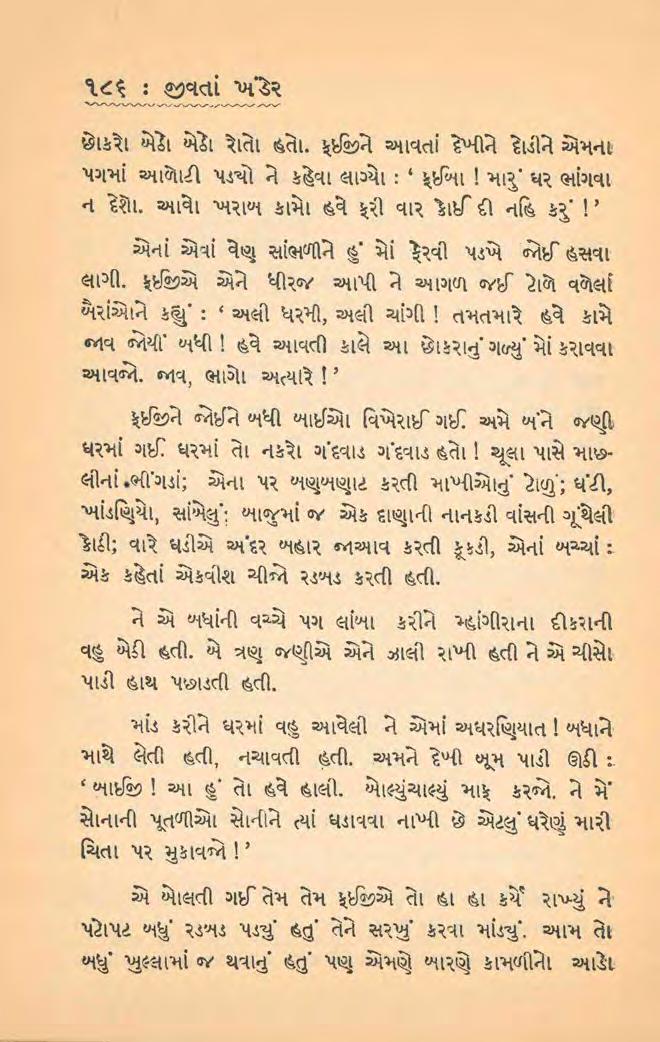 ૧૮૬ : જીવતાં ખંડેર
છોકરો બેઠો બેઠો રોતો હતો. ફઈજીને આવતાં દેખીને દોડીને એમના
પગમાં આળોટી પડ્યો ને કહેવા લાગ્યો : ‘ ફઈબા ! મારું ઘર ભાંગવા
ન દેશો. આવો ખરાબ કામો હવે ફરી વાર કોઈ દી નહિ કરું !’
એનાં એવાં વેણ સાંભળીને હું મોં ફેરવી પડખે જોઈ હસવા
લાગી. ફઈજીએ એને ધીરજ આપી ને આગળ જઈ ટોળે વળેલાં
બૈરાંઓને કહ્યું : ‘ અલી ધરમી, અલી ચાંગી ! તમતમારે હવે કામે
જાવ જોયીં બધી ! હવે આવતી કાલે આ છોકરાનું ગળ્યું મોં કરાવવા
આવજો. જાવ, ભાગો અત્યારે !’
ફઈજીને જોઈને બધી બાઈઓ વિખેરાઈ ગઈ. અમે બંને જણી
ઘરમાં ગઈ. ઘરમાં તો નકરો ગંદવાડ ગંદવાડ હતો ! ચૂલા પાસે માછ-
લીનાં ભીંગડાં; એના પર બણબણાટ કરતી માખીઓનું ટોળું; ઘંટી,
ખાંડણિયો, સાંબેલું; બાજુમાં જ એક દાણાની નાનકડી વાંસની ગૂંથેલી
કોઠી; વારે ઘડીએ અંદર બહાર જાઆવ કરતી કૂકડી, એનાં બચ્ચાં :
એક કહેતાં એકવીશ ચીજો રડબડ કરતી હતી.
ને એ બધાંની વચ્ચે પગ લાંબા કરીને મ્હાંગીરાના દીકરાની
વહુ બેઠી હતી. બે ત્રણ જણીએ એને ઝાલી રાખી હતી ને એ ચીસો
પાડી હાથ પછાડતી હતી.
માંડ કરીને ઘરમાં વહુ આવેલી ને એમાં અઘરણિયાત ! બધાને
માથે લેતી હતી, નચાવતી હતી. અમને દેખી બૂમ પાડી ઊઠી :
‘ બાઈજી ! આ હું તો હવે હાલી. બોલ્યુંચાલ્યું માફ કરજો. ને મેં
સોનાની પૂતળીઓ સોનીને ત્યાં ઘડાવવા નાખી છે એટલું ઘરેણું મારી
ચિતા પર મુકાવજો !’
એ બોલતી ગઈ તેમ તેમ ફઈજીએ તો હા હા કર્યે રાખ્યું ને
પટોપટ બધું રડબડ પડ્યું હતું તેને સરખું કરવા માંડ્યું. આમ તો
બધું ખુલ્લામાં જ થવાનું હતું પણ એમણે બારણે કામળીનો આડો